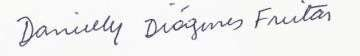 Danielly Diógenes Freitas